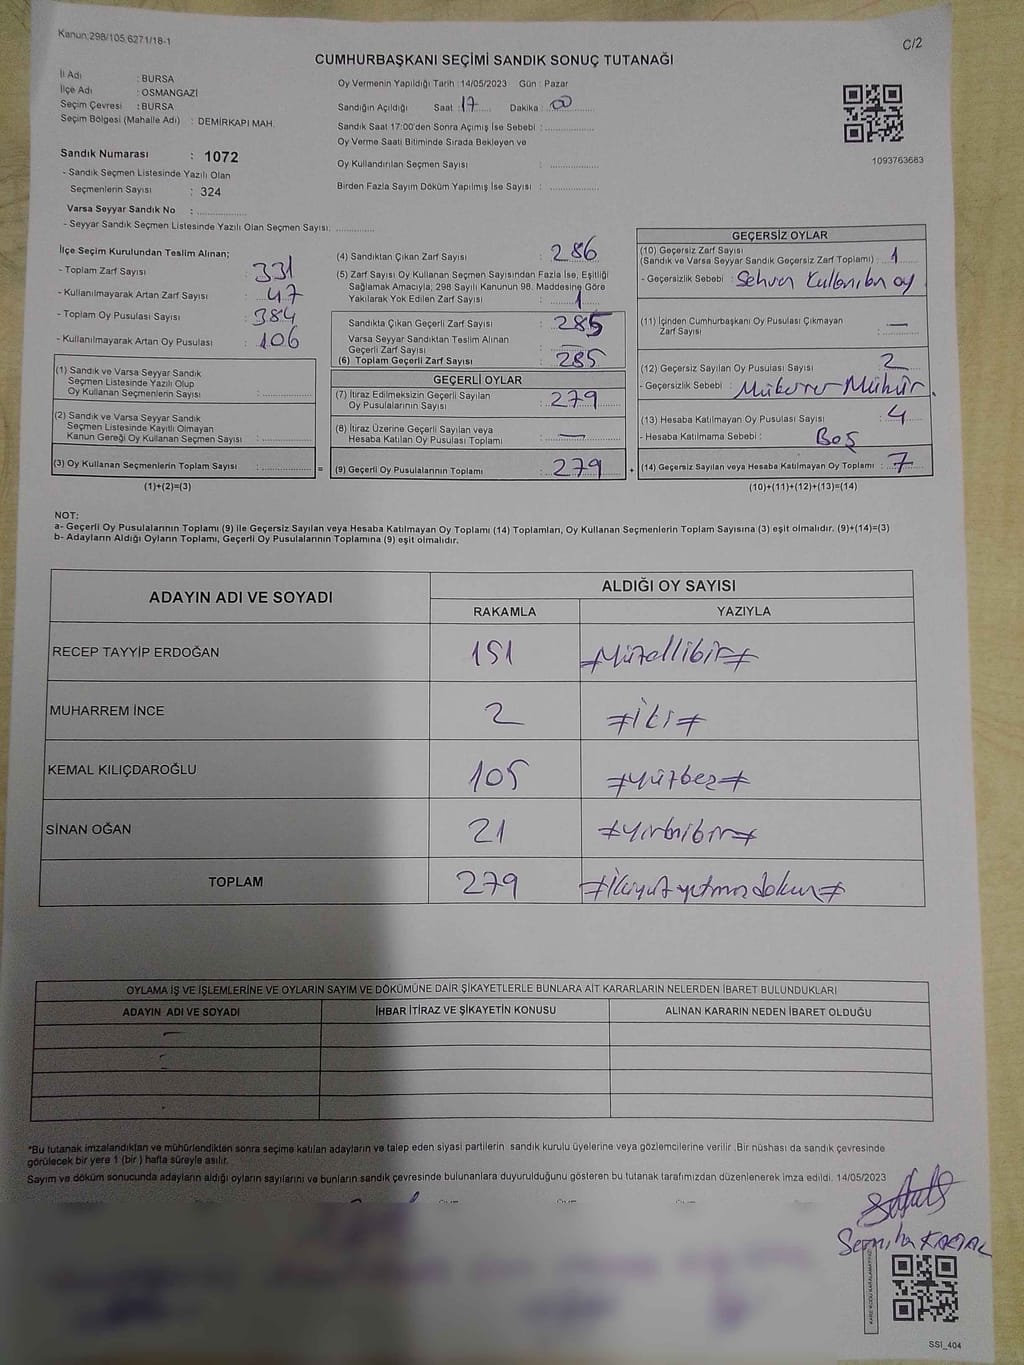 Kanun,298/105,6271/18-1
C/2
CUMHURBAŞKANI SEÇİMİ SANDIK SONUÇ TUTANAĞI
İl Adı : BURSA
İlçe Adı : OSMANGAZİ
Seçim Çevresi : BURSA
Seçim Bölgesi (Mahalle Adı) : DEMİRKAPI MAH.
Sandık Numarası : 1072
- Sandık Seçmen Listesinde Yazılı Olan
Seçmenlerin Sayısı : 324
Varsa Seyyar Sandık No :
- Seyyar Sandık Seçmen Listesinde Yazılı Olan Seçmen Sayısı:
Oy Vermenin Yapıldığı Tarih : 14/05/2023 Gün : Pazar
Sandığın Açıldığı Saat : 17 Dakika : 00
Sandık Saat 17:00'den Sonra Açımış İse Sebebi :
Oy Verme Saati Bitiminde Sırada Bekleyen ve
Oy Kullandırılan Seçmen Sayısı :
Birden Fazla Sayım Döküm Yapılmış İse Sayısı :
1093763663
İlçe Seçim Kurulundan Teslim Alınan;
- Toplam Zarf Sayısı : 331
- Kullanılmayarak Artan Zarf Sayısı : 47
- Toplam Oy Pusulası Sayısı : 384
- Kullanılmayarak Artan Oy Pusulası : 106
(1) Sandık ve Varsa Seyyar Sandık
Seçmen Listesinde Yazılı Olup
Oy Kullanan Seçmenlerin Sayısı :
(2) Sandık ve Varsa Seyyar Sandık
Seçmen Listesinde Kayıtlı Olmayan
Kanun Gereği Oy Kullanan Seçmen Sayısı :
(3) Oy Kullanan Seçmenlerin Toplam Sayısı : =
(1)+(2)=(3)
(4) Sandıktan Çıkan Zarf Sayısı : 286
(5) Zarf Sayısı Oy Kullanan Seçmen Sayısından Fazla İse, Eşitliği
Sağlamak Amacıyla, 298 Sayılı Kanunun 98. Maddesine Göre
Yakılarak Yok Edilen Zarf Sayısı : 1
Sandıkta Çıkan Geçerli Zarf Sayısı : 285
Varsa Seyyar Sandıktan Teslim Alınan
Geçerli Zarf Sayısı : —
(6) Toplam Geçerli Zarf Sayısı : 285
GEÇERLİ OYLAR
(7) İtiraz Edilmeksizin Geçerli Sayılan
Oy Pusulalarının Sayısı : 279
(8) İtiraz Üzerine Geçerli Sayılan veya
Hesaba Katılan Oy Pusulası Toplamı : —
(9) Geçerli Oy Pusulalarının Toplamı : 279 +
GEÇERSİZ OYLAR
(10) Geçersiz Zarf Sayısı
(Sandık ve Varsa Seyyar Sandık Geçersiz Zarf Toplamı) : 1
- Geçersizlik Sebebi : Sehven Kullanılan oy
(11) İçinden Cumhurbaşkanı Oy Pusulası Çıkmayan
Zarf Sayısı : —
(12) Geçersiz Sayılan Oy Pusulası Sayısı : 2
- Geçersizlik Sebebi : Mükerrer Mühür.
(13) Hesaba Katılmayan Oy Pusulası Sayısı : 4
- Hesaba Katılmama Sebebi : Boş
(14) Geçersiz Sayılan veya Hesaba Katılmayan Oy Toplamı : 7
(10)+(11)+(12)+(13)=(14)
NOT:
a- Geçerli Oy Pusulalarının Toplamı (9) ile Geçersiz Sayılan veya Hesaba Katılmayan Oy Toplamı (14) Toplamları, Oy Kullanan Seçmenlerin Toplam Sayısına (3) eşit olmalıdır. (9)+(14)=(3)
b- Adayların Aldığı Oyların Toplamı, Geçerli Oy Pusulalarının Toplamına (9) eşit olmalıdır.
ADAYIN ADI VE SOYADI ALDIĞI OY SAYISI
RAKAMLA YAZIYLA
RECEP TAYYİP ERDOĞAN 151 #Yüzellibir#
MUHARREM İNCE 2 #İki#
KEMAL KILIÇDAROĞLU 105 #yüzbeş#
SİNAN OĞAN 21 #yirmibir#
TOPLAM 279 #ikiyüzyetmişdokuz#
OYLAMA İŞ VE İŞLEMLERİNE VE OYLARIN SAYIM VE DÖKÜMÜNE DAİR ŞİKAYETLERLE BUNLARA AİT KARARLARIN NELERDEN İBARET BULUNDUKLARI
ADAYIN ADI VE SOYADI İHBAR İTİRAZ VE ŞİKAYETİN KONUSU ALINAN KARARIN NEDEN İBARET OLDUĞU
*Bu tutanak imzalandıktan ve mühürlendikten sonra seçime katılan adayların ve talep eden siyasi partilerin sandık kurulu üyelerine veya gözlemcilerine verilir .Bir nüshası da sandık çevresinde
görülecek bir yere 1 (bir ) hafta süreyle asılır.
Sayım ve döküm sonucunda adayların aldığı oyların sayılarını ve bunların sandık çevresinde bulunanlara duyurulduğunu gösteren bu tutanak tarafımızdan düzenlenerek imza edildi. 14/05/2023
Semiha
SSI_404